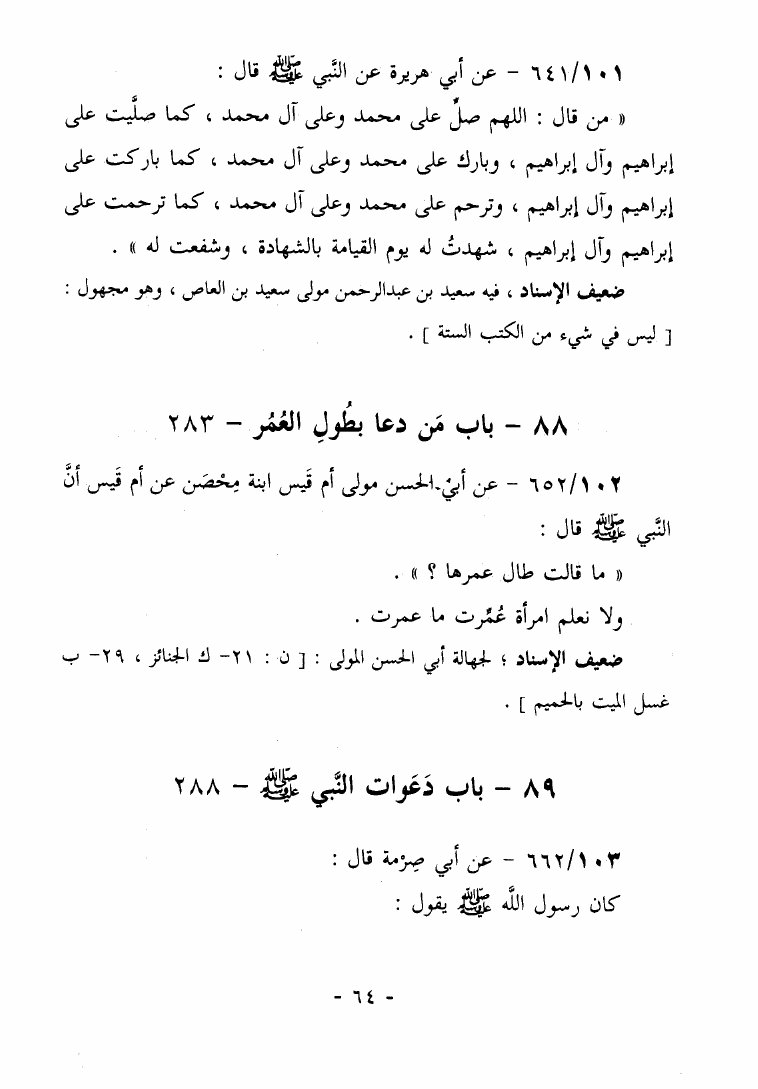 ٦٤١/١٠١ - عن أبي هريرة عن النَّبي ﷺ قال :
« من قال : اللهم صلِّ على محمد وعلى آل محمد ، كما صلَّيت على
إبراهيم وآل إبراهيم ، وبارك على محمد وعلى آل محمد ، كما باركت على
إبراهيم وآل إبراهيم ، وترحم على محمد وعلى آل محمد ، كما ترحمت على
إبراهيم وآل إبراهيم ، شهدتُ له يوم القيامة بالشهادة ، وشفعت له » .
ضعيف الإسناد ، فيه سعيد بن عبدالرحمن مولى سعيد بن العاص ، وهو مجهول :
[ ليس في شيء من الكتب الستة ] .
٨٨ - باب مَن دعا بطُولِ العُمُر - ٢٨٣
٦٥٢/١٠٢ - عن أبي الحسن مولى أم قَيس ابنة مِحْصَن عن أم قَيس أنَّ
النَّبي ﷺ قال :
« ما قالت طال عمرها ؟ » .
ولا نعلم امرأة عُمِّرت ما عمرت .
ضعيف الإسناد ؛ لجهالة أبي الحسن المولى : [ ن : ٢١- ك الجنائز ، ٢٩- ب
غسل الميت بالحميم ] .
٨٩ - باب دَعَوات النَّبي ﷺ - ٢٨٨
٦٦٢/١٠٣ - عن أبي صِرْمة قال :
كان رسول اللَّه ﷺ يقول :
- ٦٤ -